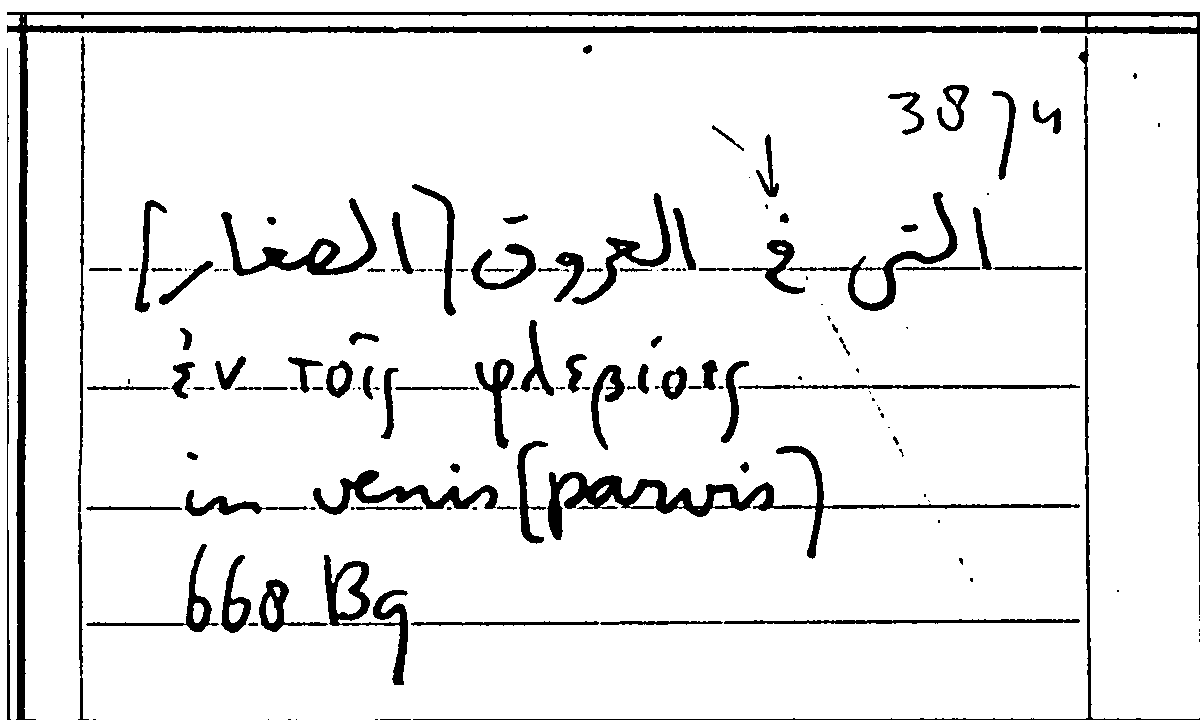 387,4
التى فى العروق [الصغار]
ἐν τοῖς φλεβίοις
in venis [parvis]
668 B9